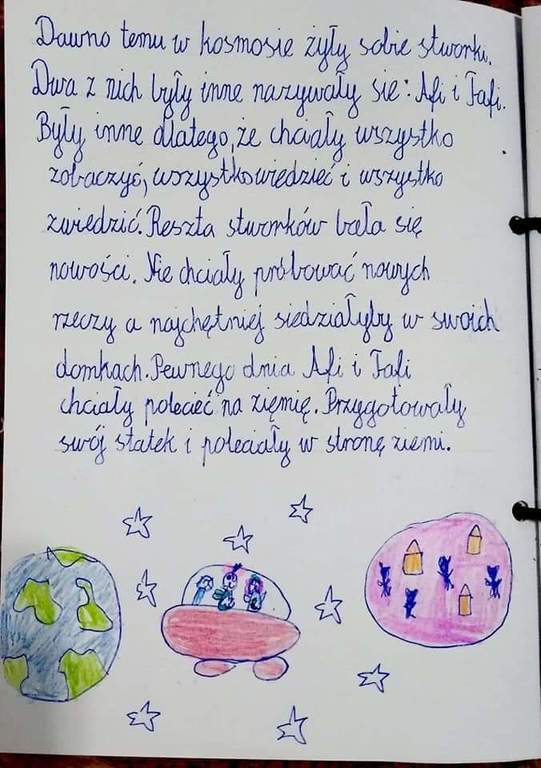 Dawno temu w kosmosie żyły sobie stworki.
Dwa z nich były inne nazywały się: Afi i Fafi.
Były inne dlatego, że chciały wszystko
zobaczyć, wszystko wiedzieć i wszystko
zwiedzić. Reszta stworków bała się
nowości. Nie chciały próbować nowych
rzeczy a najchętniej siedziałyby w swoich
domkach. Pewnego dnia Afi i Fafi
chciały polecieć na ziemię. Przygotowały
swój statek i poleciały w stronę ziemi.